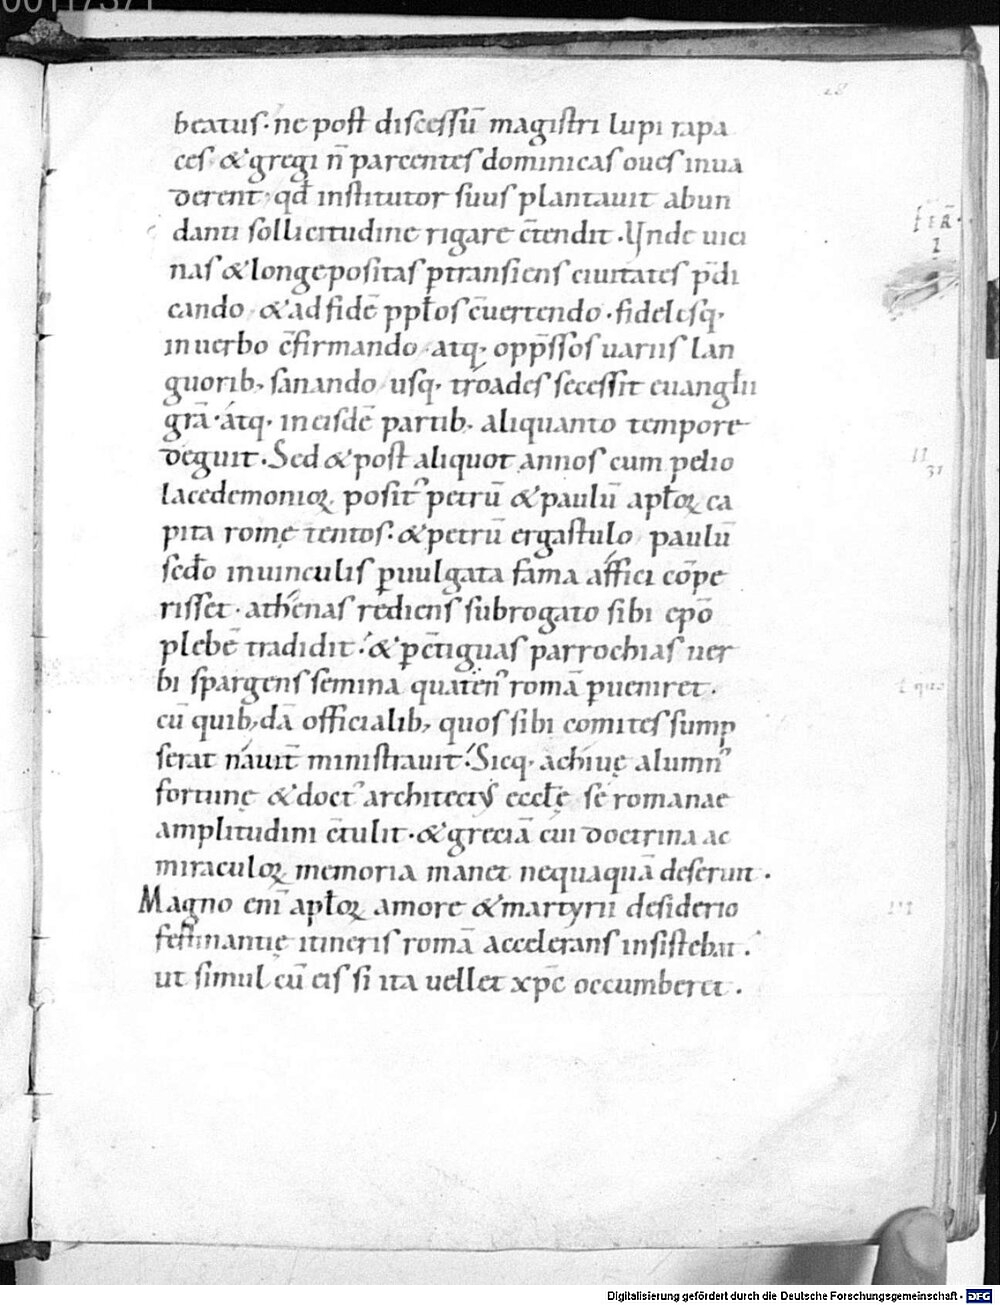 00117371
28
beatus· ne post discessū magistri lupi rapa
ces· & gregi n̄ parcentes dominicas oues inua
derent, qđ institutor suus plantauit abun
danti sollicitudine rigare c̄tendit· Vnde uici
nas & longe positas ꝑtransiens ciuitates p̄di
cando, & ad fidē ppłos c̄uertendo· fidelesq·
in uerbo c̄firmando, atq· opp̄ssos uariis lan
guorib; sanando usq· tróades secessit euangłii
grā· átq· in eisdē partib; aliquanto tempore
deguit· Sed & post aliquot annos cum pelio
lacedemonioꝝ posit᾿ petrū & paulū apłoꝝ ca
pita romę tentos· & petrū ergastulo, paulū
sedo in uinculis ꝑuulgata fama áffici cōpe
risset· athénas rediens subrogato sibi ep̄o
plebē tradidit· & ꝑc̄tiguas parrochias uer
bi spargens semina quaten᾿ romā ꝑueniret·
cū quib;dā officialib; quos sibi comites sump
serat náuiū ministrauit· Sicq· achiuę alumn᾿
fortunę & doct᾿ architectus eccłę sc̄ romanae
amplitudini c̄tulit· & greciā cui doctrina ac
miraculoꝝ memoria manet nequaquā deseruit·
Magno eni apłoꝝ amore & martyrii desiderio
festinantię itineris romā accelerans insistebat·
ut simul cū eis si ita uellet xp̄c occumberet·
Digitalisierung gefördert durch die Deutsche Forschungsgemeinschaft - DFG